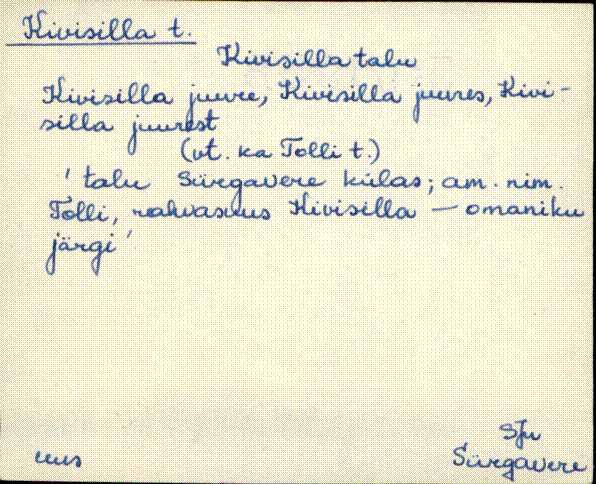 Kivisilla t.
Kivisilla talu
Kivisilla juure, Kivisilla juures, Kivi-
silla juurest
(vt. ka Tolli t.)
'talu Sürgavere külas; am. nim.
Tolli, rahvasuus Kivisilla – omaniku
järgi'
SJn
uus Sürgavere